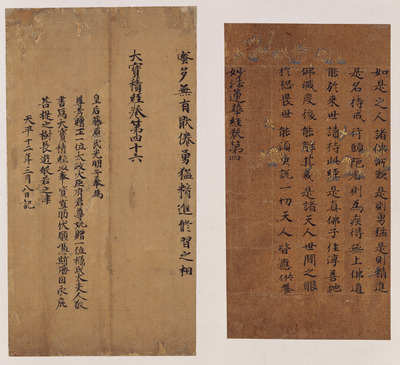 如是之人 諸佛所歎 是則勇猛 是則精進
是名持戒 行頭陀者 則為疾得 無上佛道
能於來世 讀持此經 是真佛子 住淳善地
佛滅度後 能解其義 是諸天人 世間之眼
於恐畏世 能須臾說 一切天人 皆應供養
妙法蓮華經卷第四
蜜多無有厭倦勇猛精進修習之相
大寶積經卷第四十六
皇后藤原氏光明子奉為
尊考贈正一位太政大臣府君尊妣贈一位橘氏太夫人敬
書寫大寶積經 奉資冥助伏願憑斯勝因永庇
菩提之樹長遊般若之津
天平十二年三月八日記